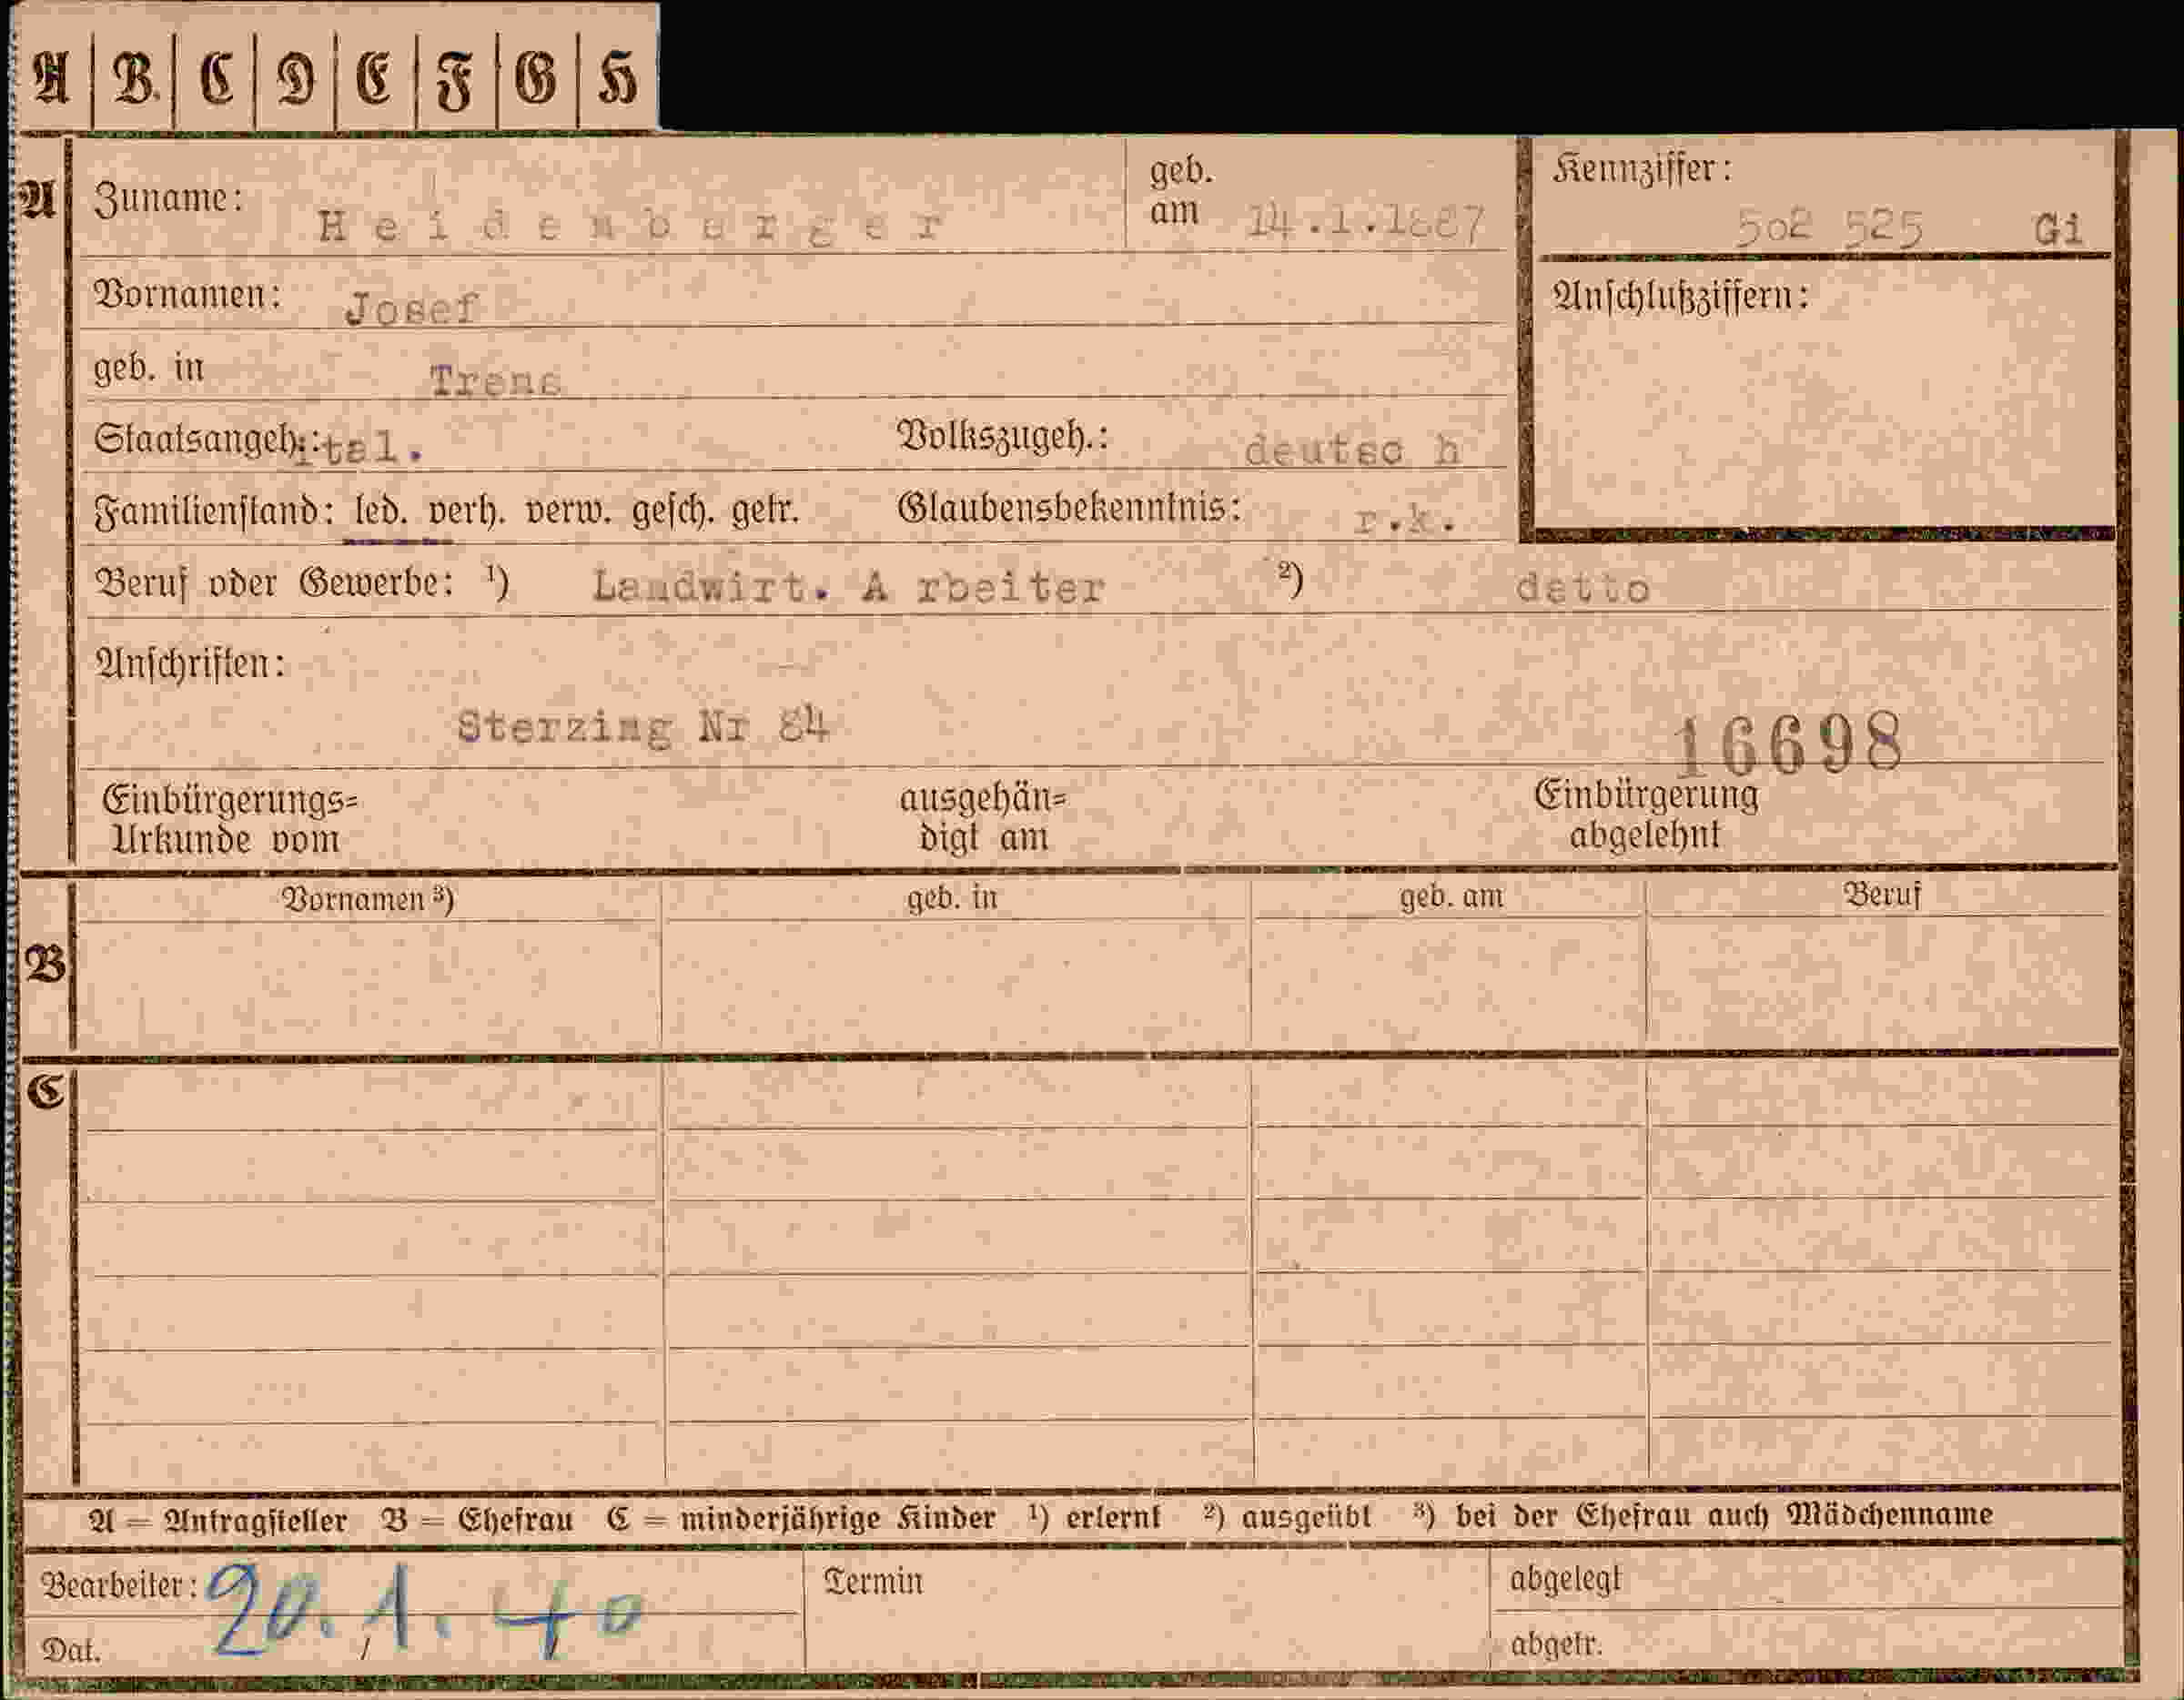 A B C D E F G H
A Zuname: Heidenberger geb. am 14.1.1887 Kennziffer: 502 525 Gi
Vornamen: Josef Anschlußziffern:
geb. in Trens
Staatsangeh.: ital. Volkszugeh.: deutsc h
Familienstand: led. verh. verw. gesch. getr. Glaubensbekenntnis: r.k.
Beruf oder Gewerbe: ¹) Landwirt. A rbeiter ²) detto
Anschriften:
Sterzing Nr 84
16698
Einbürgerungs= ausgehän= Einbürgerung
Urkunde vom digt am abgelehnt
B Vornamen ³) geb. in geb. am Beruf
C
A = Antragsteller B = Ehefrau C = minderjährige Kinder ¹) erlernt ²) ausgeübt ³) bei der Ehefrau auch Mädchenname
Bearbeiter: 20.1.40 Termin abgelegt
Dat. abgetr.